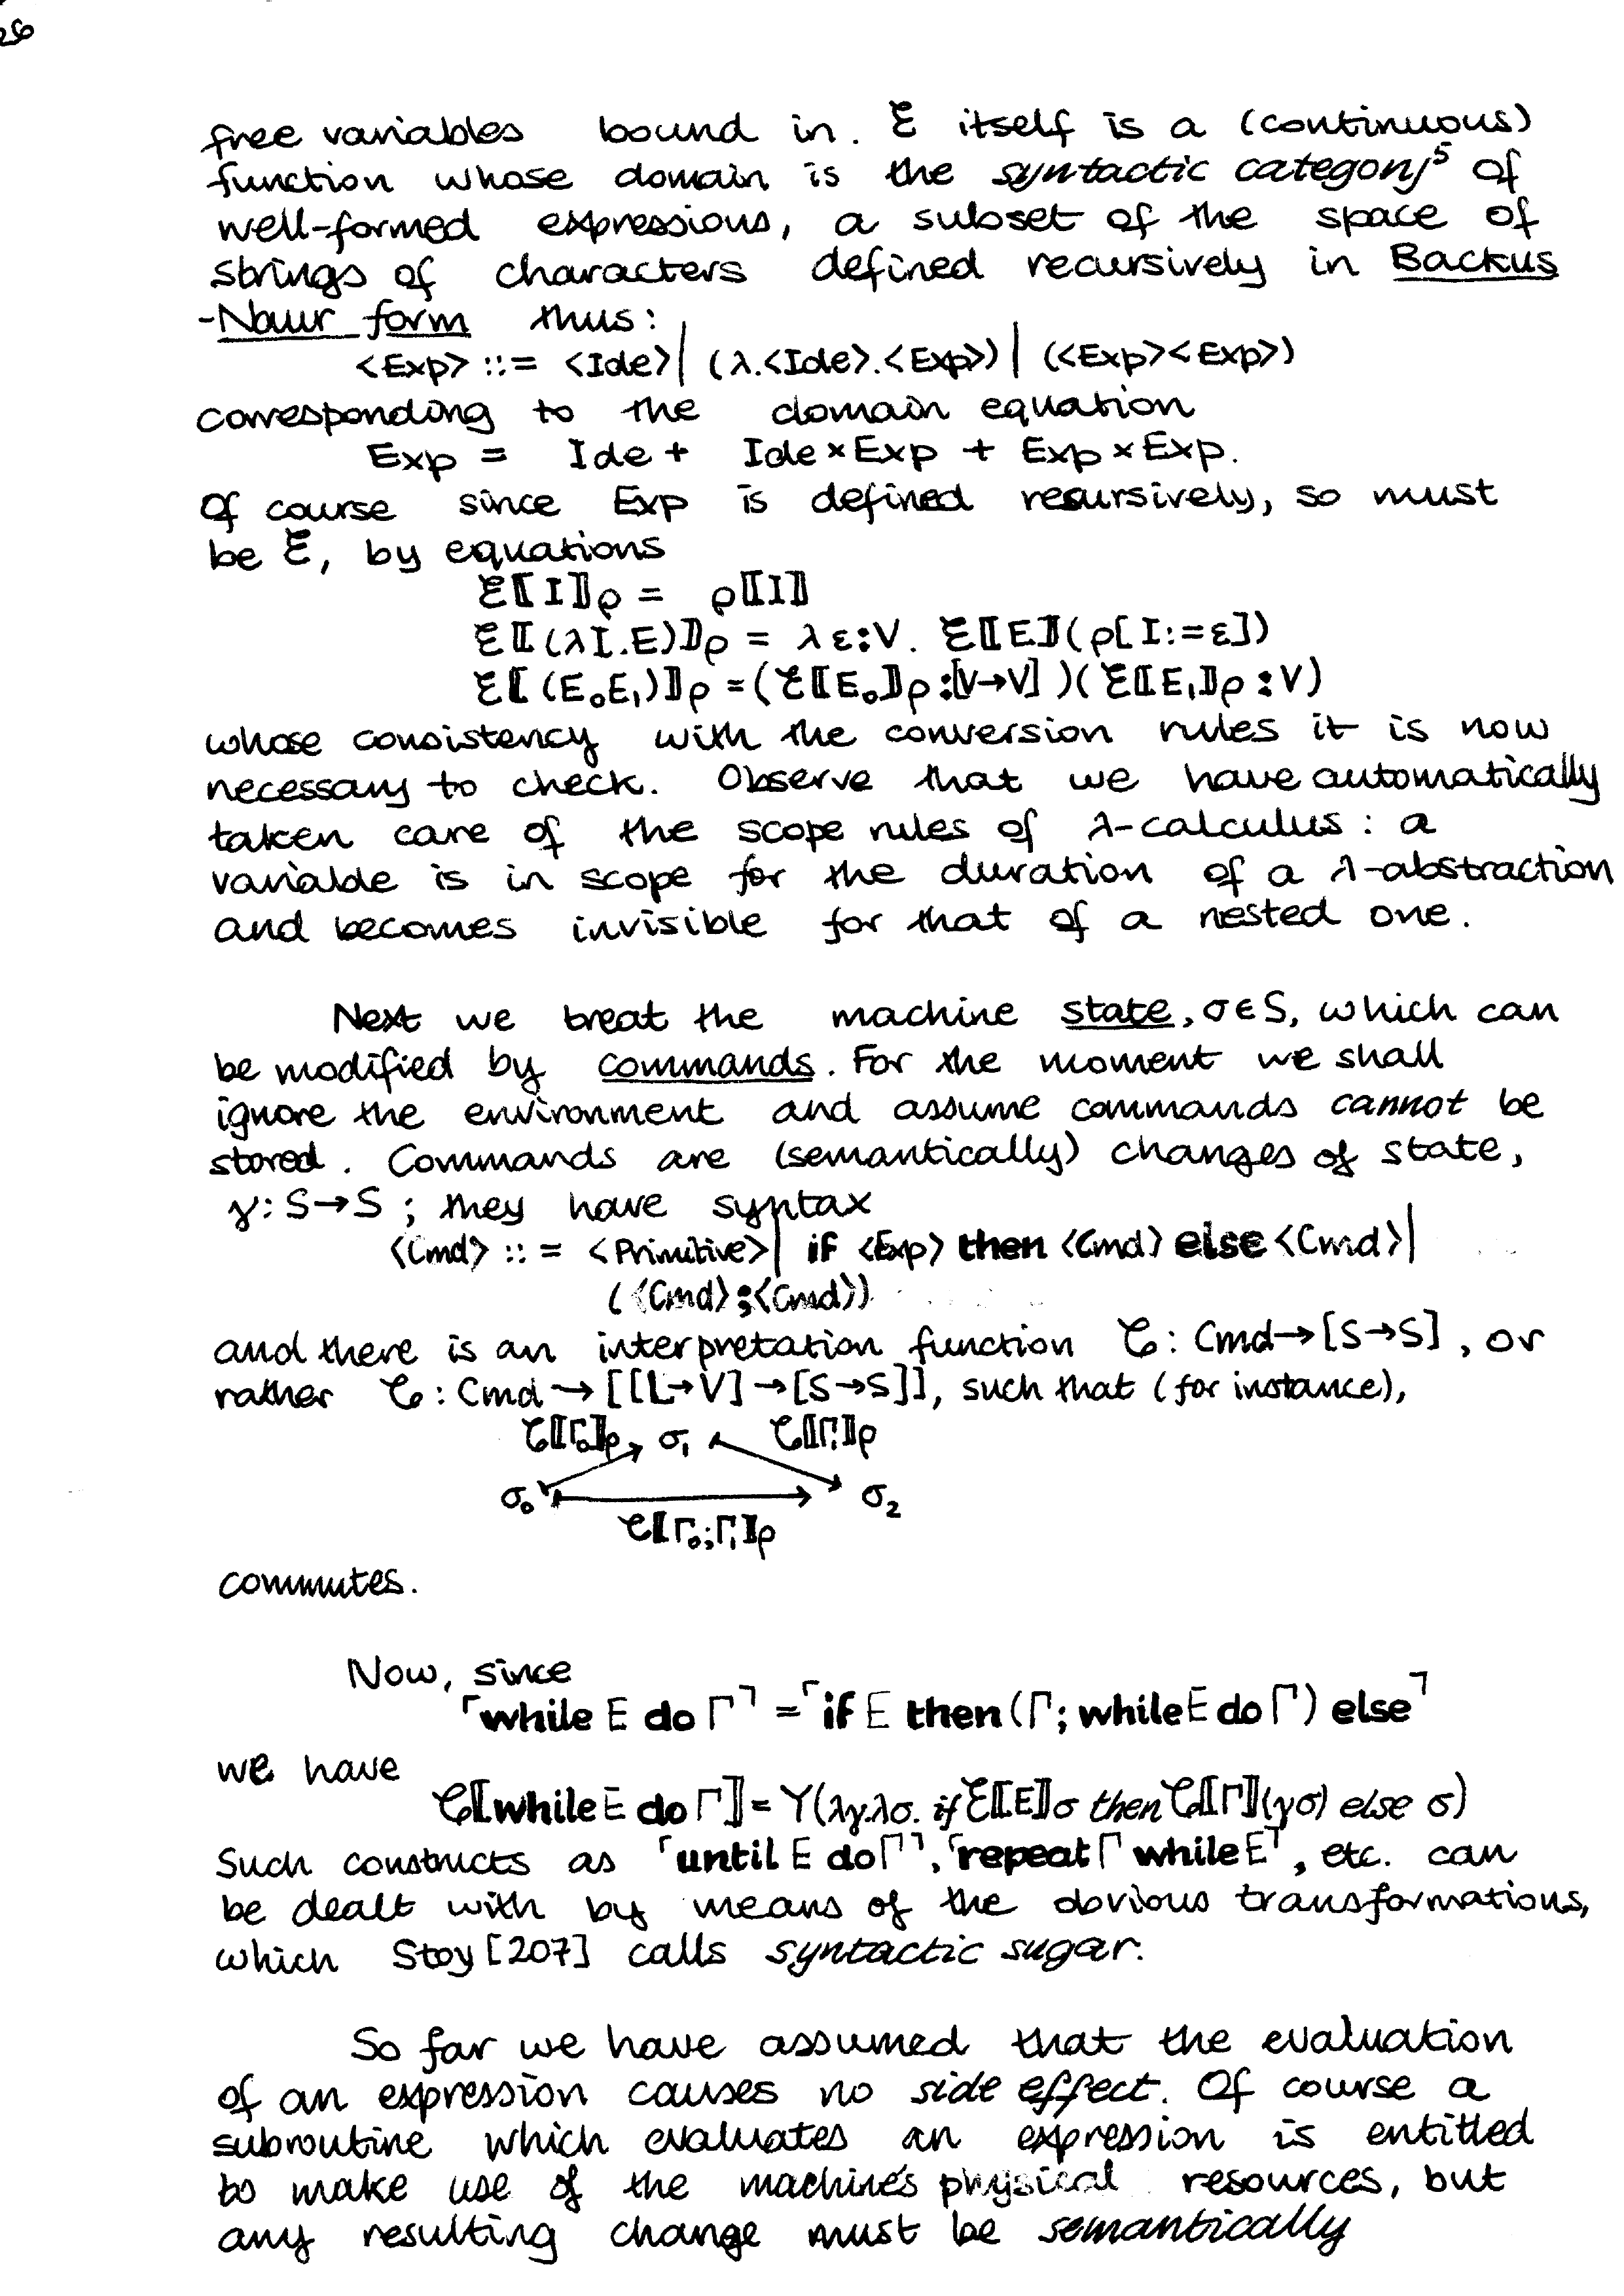 26
free variables bound in. ℰ itself is a (continuous)
function whose domain is the syntactic category⁵ of
well-formed expressions, a subset of the space of
strings of characters defined recursively in Backus
-Naur form thus:
<Exp> ::= <Ide> | (λ.<Ide>.<Exp>) | (<Exp><Exp>)
corresponding to the domain equation
Exp = Ide + Ide × Exp + Exp × Exp.
Of course since Exp is defined recursively, so must
be ℰ, by equations
ℰ⟦I⟧ρ = ρ⟦I⟧
ℰ⟦(λI.E)⟧ρ = λε:V. ℰ⟦E⟧(ρ[I:=ε])
ℰ⟦(E₀E₁)⟧ρ = (ℰ⟦E₀⟧ρ:[V→V])(ℰ⟦E₁⟧ρ:V)
whose consistency with the conversion rules it is now
necessary to check. Observe that we have automatically
taken care of the scope rules of λ-calculus: a
variable is in scope for the duration of a λ-abstraction
and becomes invisible for that of a nested one.
Next we treat the machine state, σ∈S, which can
be modified by commands. For the moment we shall
ignore the environment and assume commands cannot be
stored. Commands are (semantically) changes of state,
γ: S→S; they have syntax
<Cmd> ::= <Primitive> | if <Exp> then <Cmd> else <Cmd> |
(<Cmd>;<Cmd>)
and there is an interpretation function 𝒞: Cmd→[S→S], or
rather 𝒞: Cmd→[[L→V]→[S→S]], such that (for instance),
𝒞⟦Γ₀⟧ρ σ₁ 𝒞⟦Γ₁⟧ρ
σ₀ σ₂
𝒞⟦Γ₀;Γ₁⟧ρ
commutes.
Now, since
⌜while E do Γ⌝ = ⌜if E then (Γ; while E do Γ) else⌝
we have
𝒞⟦while E do Γ⟧ = Y(λγ.λσ. if ℰ⟦E⟧σ then 𝒞⟦Γ⟧(γσ) else σ)
Such constructs as ⌜until E do Γ⌝, ⌜repeat Γ while E⌝, etc. can
be dealt with by means of the obvious transformations,
which Stoy [207] calls syntactic sugar.
So far we have assumed that the evaluation
of an expression causes no side effect. Of course a
subroutine which evaluates an expression is entitled
to make use of the machine's physical resources, but
any resulting change must be semantically